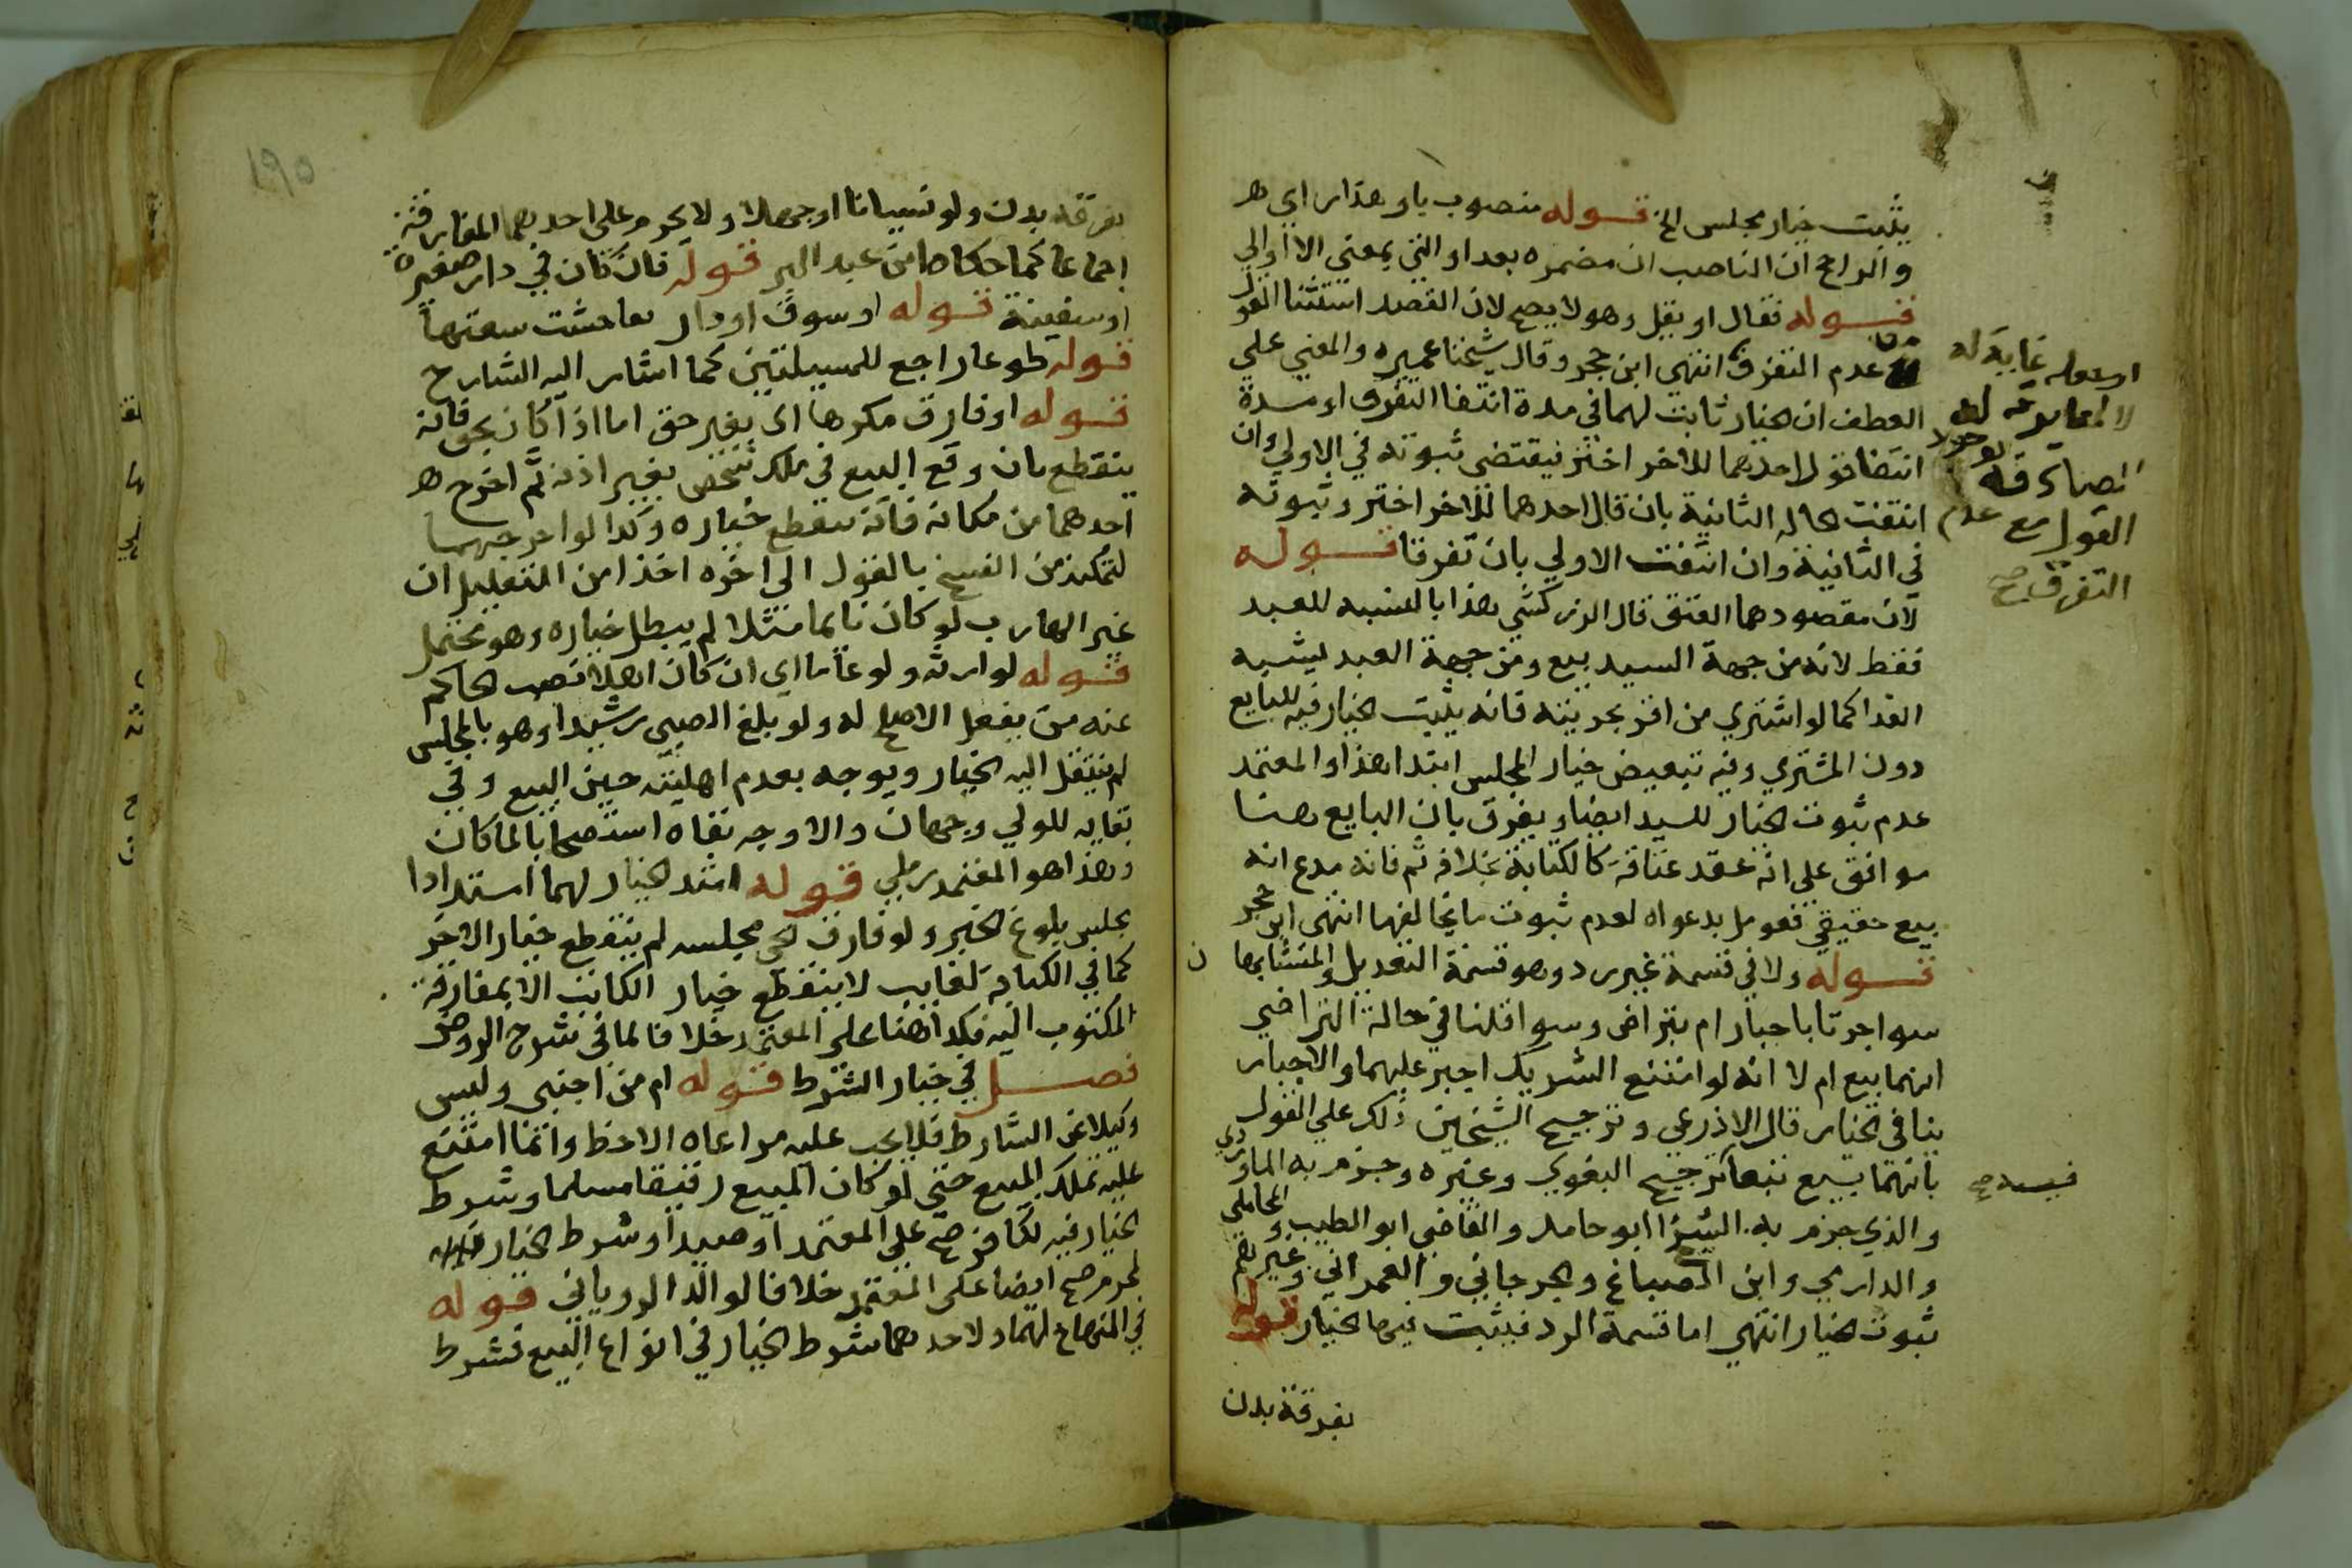 يثبت خيار مجلس الخ قوله منصوب باو هذا راي هر
والراجح ان الناصب ان مضمره بعد او التي بمعنى الا او الي
قوله فقال او يقل وهو لا يصح لان القصد استثنا القول
من عدم التفرق انتهى ابن حجر وقال شيخنا عميره والمعني علي
العطف ان الخيار ثابت لهما في مدة انتفا التفرق او مدة
انتفا قول احدهما للاخر اختر فيقتضى ثبوته في الاولي وان
انتفت الحاله الثانية بان قال احدهما للاخر اختر وثبوته
في الثانية وان انتفت الاولي بان تفرقا قوله
لان مقصودهما العتق قال الزركشي هذا بالنسبه للعبد
فقط لانه من جهة السيد بيع ومن جهة العبد ليشبه
الفدا كما لو اشتري من اقر بحريته فانه يثبت الخيار فيه للبايع
دون المشتري وفيه تبعيض خيار المجلس ابتدا هذا والمعتمد
عدم ثبوت الخيار للسيد ايضا ويفرق بان البايع هنا
موافق على انه عقد عتاقه كالكتابة بخلافه ثم فانه مدع انه
بيع حقيقي فعومل بدعواه لعدم ثبوت ما يخالفها انتهى ابن حجر
قوله ولا في قسمة غير رد وهو قسمة التعديل والمتشابها ن
سوا جرتا باجبار ام بتراض وسوا قلنا في حالة التراضي
انهما بيع ام لا انه لو امتنع الشريك اجبر عليهما والاجبار
ينافي الخيار قال الاذرعي وترجيح الشيخين ذلك علي القول
بانهما بيع تبعا ترجيح البغوي وغيره وجزم به الماوردي
والذي جزم به الشيخ ابو حامد والقاضي ابو الطيب والمحاملي
والدارمي وابن الصباغ والجرجاني والعمراني وغيرهم
ثبوت الخيار انتهي اما قسمة الرد فيثبت فيها الخيار قوله
بفرقة بدن
غاية له
القول مع عدم
التفرق صح
بفرقة بدن ولو نسيانا او جهلا ولا يحرم على احدهما المفارقة
اجماعا كما حكاه ابن عبد البر قوله فان كان في دار صغيرة
او سفينة قوله او سوق او دار تفاحشت سعتها
قوله طوعا راجع للمسيلتين كما اشار اليه الشارح
قوله او فارق مكرها اي بغير حق اما اذا كان بحق فانه
ينقطع بان وقع البيع في ملك شخص بغير اذنه ثم اخرج هر
احدهما من مكانه فانه ينقطع خياره وكذا لو اخرجهما
لتمكنه من الفسخ بالقول الى اخره اخذا من التعليل ان
غير الهارب لو كان نايما مثلا لم يبطل خياره وهو محتمل
قوله لوارثه ولو عاما اي ان كان اهلا نصب الحاكم
عنه من يفعل الاصلح له ولو بلغ الصبي رشيدا وهو بالمجلس
لم ينتقل اليه الخيار ويوجه بعدم اهليته حين البيع وفي
بقايه للولي وجهان والاوجه بقاه استصحابا لما كان
وهذا هو المعتمد رملي قوله امتد الخيار لهما امتدادا
بجلس بلوغ الخبر ولو فارق مجلسه لم ينقطع خيار الاخر
كما في الكتابة لغايب لا ينقطع خيار الكاتب الا بمفارقة
المكتوب اليه فكذا هنا على المعتمد خلافا لما في شرح الروض
فصل في خيار الشرط قوله ام من اجنبي وليس
وكيلا عن الشارط فلا يجب عليه مراعاه الاحظ وانما امتنع
عليه تملك المبيع حتي لو كان المبيع رقيقا مسلما وشرط
الخيار فيه لكافر صح علي المعتمد او صيدا وشرط الخيار فيه
لمحرم صح ايضا على المعتمد خلافا لوالد الروياني قوله
في المنهاج لهما ولاحدهما شرط الخيار في انواع البيع فشرط
١٩٥